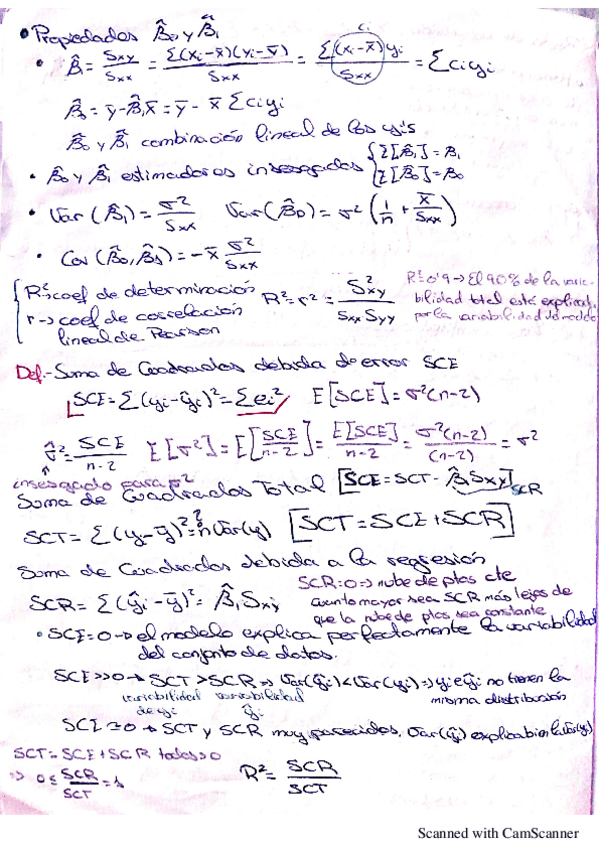 • Propiedades β̂₀ y β̂₁
• β̂₁ = Sxy/Sxx = Σ(xᵢ-x̄)(yᵢ-ȳ)/Sxx = Σ(xᵢ-x̄)yᵢ/Sxx = Σcᵢyᵢ
cᵢ
β̂₀ = ȳ-β̂₁x̄ = ȳ - x̄ Σcᵢyᵢ
β̂₀ y β̂₁ combinación lineal de los yᵢ's
• β̂₀ y β̂₁ estimadores insesgados { E[β̂₁] = β₁
E[β̂₀] = β₀
• Var(β̂₁) = σ²/Sxx Var(β̂₀) = σ²(1/n + x̄/Sxx)
• Cov(β̂₀,β̂₁) = -x̄ σ²/Sxx
R² → coef de determinación
r → coef de correlación
lineal de Pearson
R² = r² = S²xy/SxxSyy
R² = 0'9 → El 90% de la varia-
bilidad total está explicada
por la variabilidad del modelo
Def.- Suma de Cuadrados debida de error SCE
SCE = Σ(yᵢ-ŷᵢ)² = Σeᵢ² E[SCE] = σ²(n-2)
σ̂² = SCE/n-2 E[σ̂²] = E[SCE/n-2] = E[SCE]/n-2 = σ²(n-2)/(n-2) = σ²
insesgado para σ²
Suma de Cuadrados Total [SCE = SCT - β̂₁Sxy]
SCR
SCT = Σ(yᵢ-ȳ)² = n Var(y) [SCT = SCE + SCR]
Suma de Cuadrados debida a la regresión
SCR = Σ(ŷᵢ-ȳ)² = β̂₁Sxy
SCR=0 ⇒ nube de ptos cte
cuanto mayor sea SCR más lejos de
que la nube de ptos sea constante
• SCE=0 → el modelo explica perfectamente la variabilidad
del conjunto de datos.
SCE>>0 → SCT > SCR ⇒ Var(ŷᵢ) < Var(yᵢ) ⇒ yᵢ e ŷᵢ no tienen la
variabilidad variabilidad misma distribución
de yᵢ ŷᵢ
SCE≃0 → SCT y SCR muy parecidos, Var(ŷᵢ) explica bien la Var(yᵢ)
SCT = SCE + SCR todas > 0
⇒ 0 ≤ SCR/SCT = 1
R² = SCR/SCT
Scanned with CamScanner